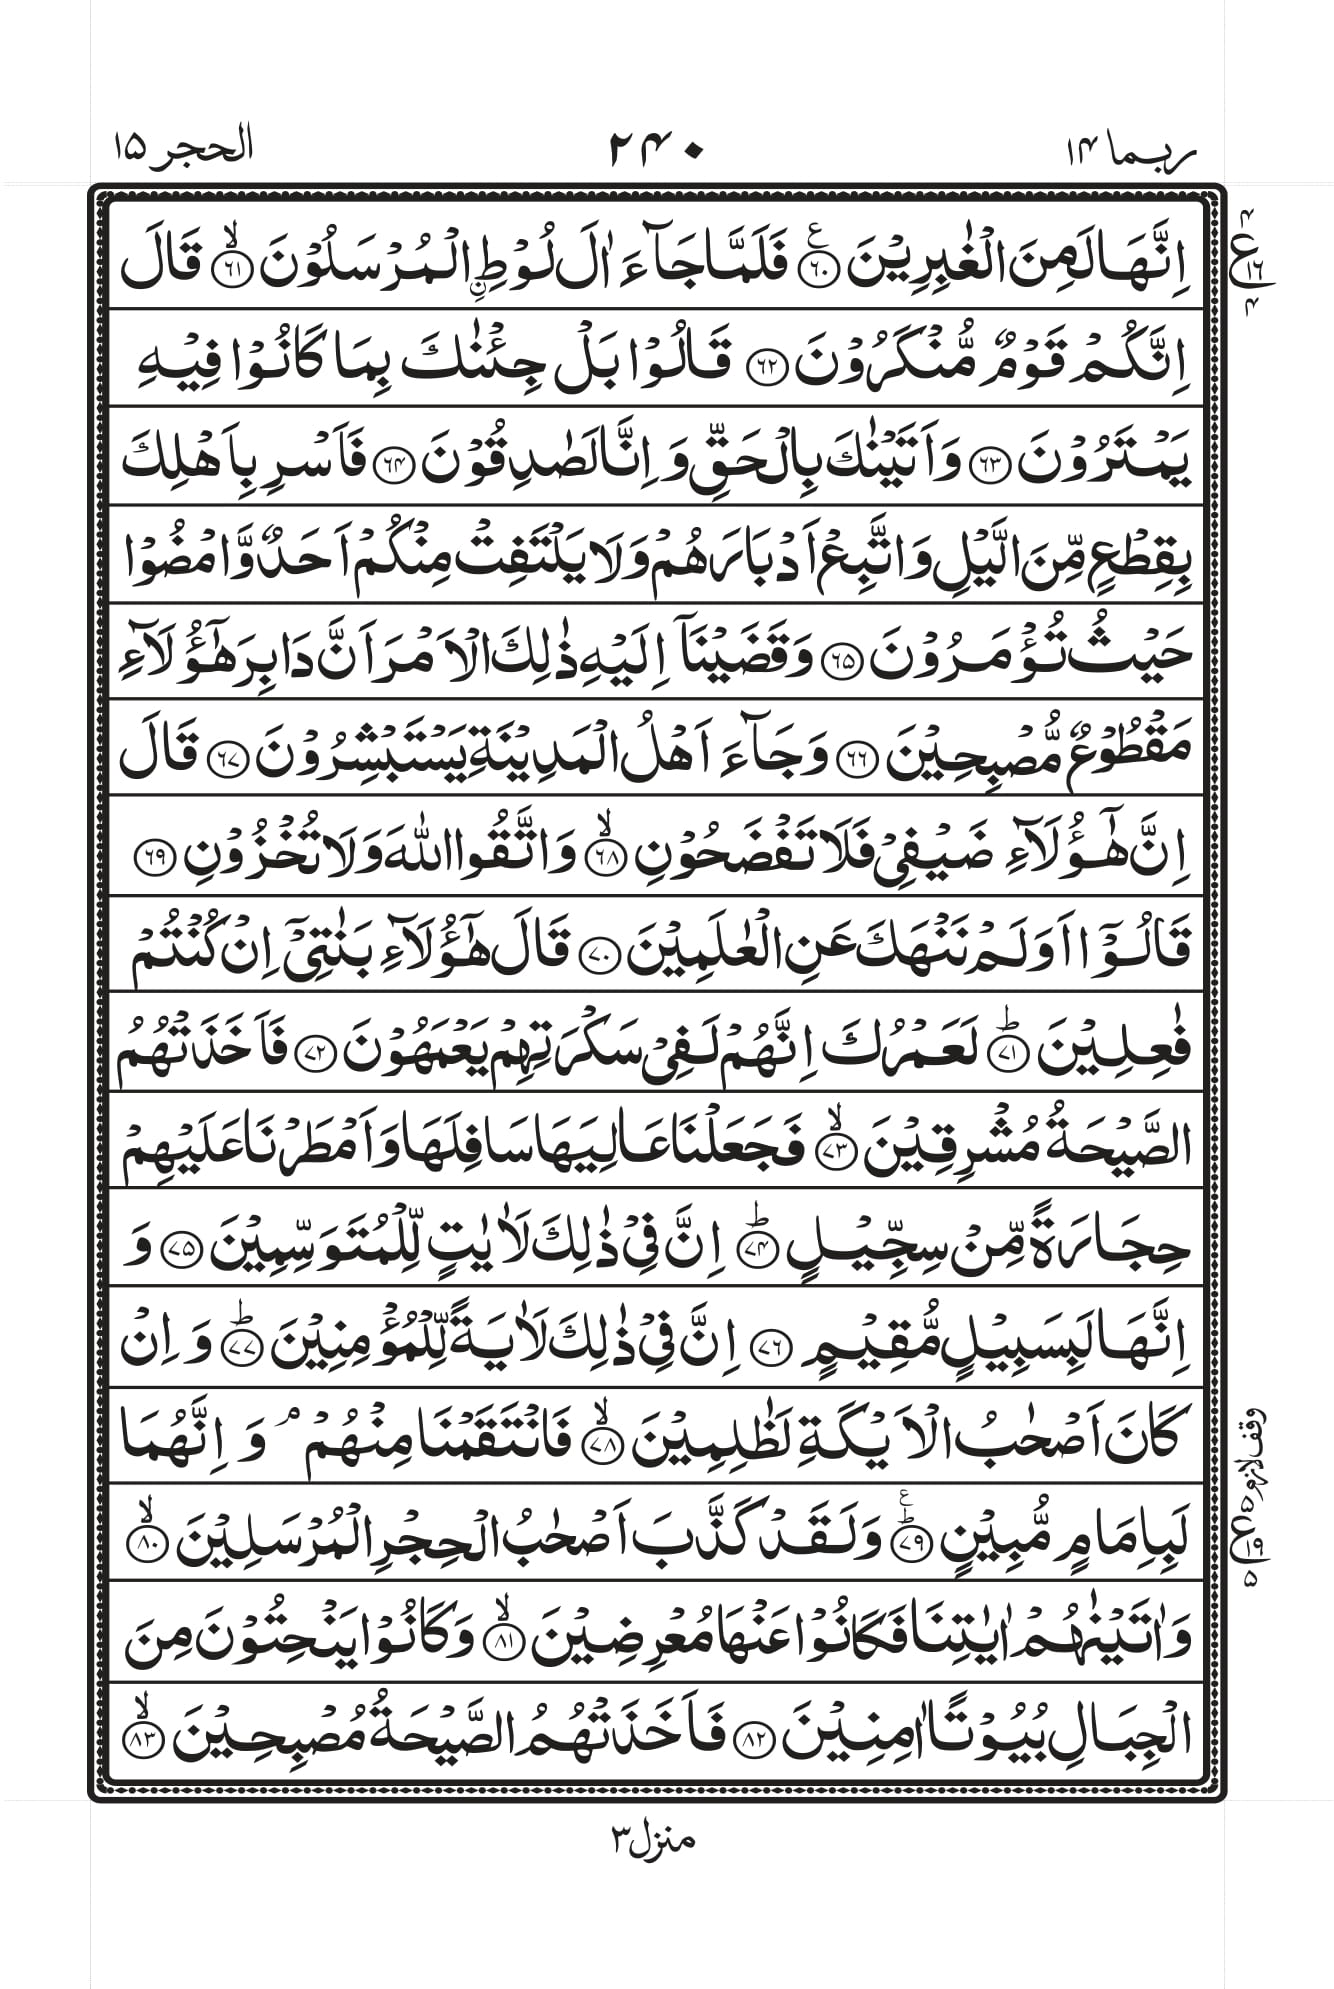 ربما ۱۴
۲۴۰
الحجر ۱۵
اِنَّهَا لَمِنَ الْغٰبِرِيْنَ ﴿۶۰﴾ۧ فَلَمَّا جَآءَ اٰلَ لُوْطِ ِۨالْمُرْسَلُوْنَ ﴿۶۱﴾ۙ قَالَ
اِنَّكُمْ قَوْمٌ مُّنْكَرُوْنَ ﴿۶۲﴾ قَالُوْا بَلْ جِئْنٰكَ بِمَا كَانُوْا فِيْهِ
يَمْتَرُوْنَ ﴿۶۳﴾ وَاَتَيْنٰكَ بِالْحَقِّ وَ اِنَّا لَصٰدِقُوْنَ ﴿۶۴﴾ فَاَسْرِ بِاَهْلِكَ
بِقِطْعٍ مِّنَ الَّيْلِ وَاتَّبِعْ اَدْبَارَهُمْ وَلَا يَلْتَفِتْ مِنْكُمْ اَحَدٌ وَّامْضُوْا
حَيْثُ تُؤْمَرُوْنَ ﴿۶۵﴾ وَقَضَيْنَآ اِلَيْهِ ذٰلِكَ الْاَمْرَ اَنَّ دَابِرَ هٰٓؤُلَآءِ
مَقْطُوْعٌ مُّصْبِحِيْنَ ﴿۶۶﴾ وَجَآءَ اَهْلُ الْمَدِيْنَةِ يَسْتَبْشِرُوْنَ ﴿۶۷﴾ قَالَ
اِنَّ هٰٓؤُلَآءِ ضَيْفِيْ فَلَا تَفْضَحُوْنِ ﴿۶۸﴾ۙ وَاتَّقُوا اللّٰهَ وَلَا تُخْزُوْنِ ﴿۶۹﴾
قَالُوْٓا اَوَلَمْ نَنْهَكَ عَنِ الْعٰلَمِيْنَ ﴿۷۰﴾ قَالَ هٰٓؤُلَآءِ بَنٰتِيْٓ اِنْ كُنْتُمْ
فٰعِلِيْنَ ﴿۷۱﴾ؕ لَعَمْرُكَ اِنَّهُمْ لَفِيْ سَكْرَتِهِمْ يَعْمَهُوْنَ ﴿۷۲﴾ فَاَخَذَتْهُمُ
الصَّيْحَةُ مُشْرِقِيْنَ ﴿۷۳﴾ۙ فَجَعَلْنَا عَالِيَهَا سَافِلَهَا وَاَمْطَرْنَا عَلَيْهِمْ
حِجَارَةً مِّنْ سِجِّيْلٍ ﴿۷۴﴾ؕ اِنَّ فِيْ ذٰلِكَ لَاٰيٰتٍ لِّلْمُتَوَسِّمِيْنَ ﴿۷۵﴾ وَ
اِنَّهَا لَبِسَبِيْلٍ مُّقِيْمٍ ﴿۷۶﴾ اِنَّ فِيْ ذٰلِكَ لَاٰيَةً لِّلْمُؤْمِنِيْنَ ﴿۷۷﴾ؕ وَ اِنْ
كَانَ اَصْحٰبُ الْاَيْكَةِ لَظٰلِمِيْنَ ﴿۷۸﴾ۙ فَانْتَقَمْنَا مِنْهُمْ ۘ وَ اِنَّهُمَا
لَبِاِمَامٍ مُّبِيْنٍ ﴿۷۹﴾ؕۧ وَلَقَدْ كَذَّبَ اَصْحٰبُ الْحِجْرِ الْمُرْسَلِيْنَ ﴿۸۰﴾ۙ
وَاٰتَيْنٰهُمْ اٰيٰتِنَا فَكَانُوْا عَنْهَا مُعْرِضِيْنَ ﴿۸۱﴾ۙ وَكَانُوْا يَنْحِتُوْنَ مِنَ
الْجِبَالِ بُيُوْتًا اٰمِنِيْنَ ﴿۸۲﴾ فَاَخَذَتْهُمُ الصَّيْحَةُ مُصْبِحِيْنَ ﴿۸۳﴾ۙ
۴
ع
۱۶
۴
وقف لازم
۵
ع
۱۹
۵
منزل ۳